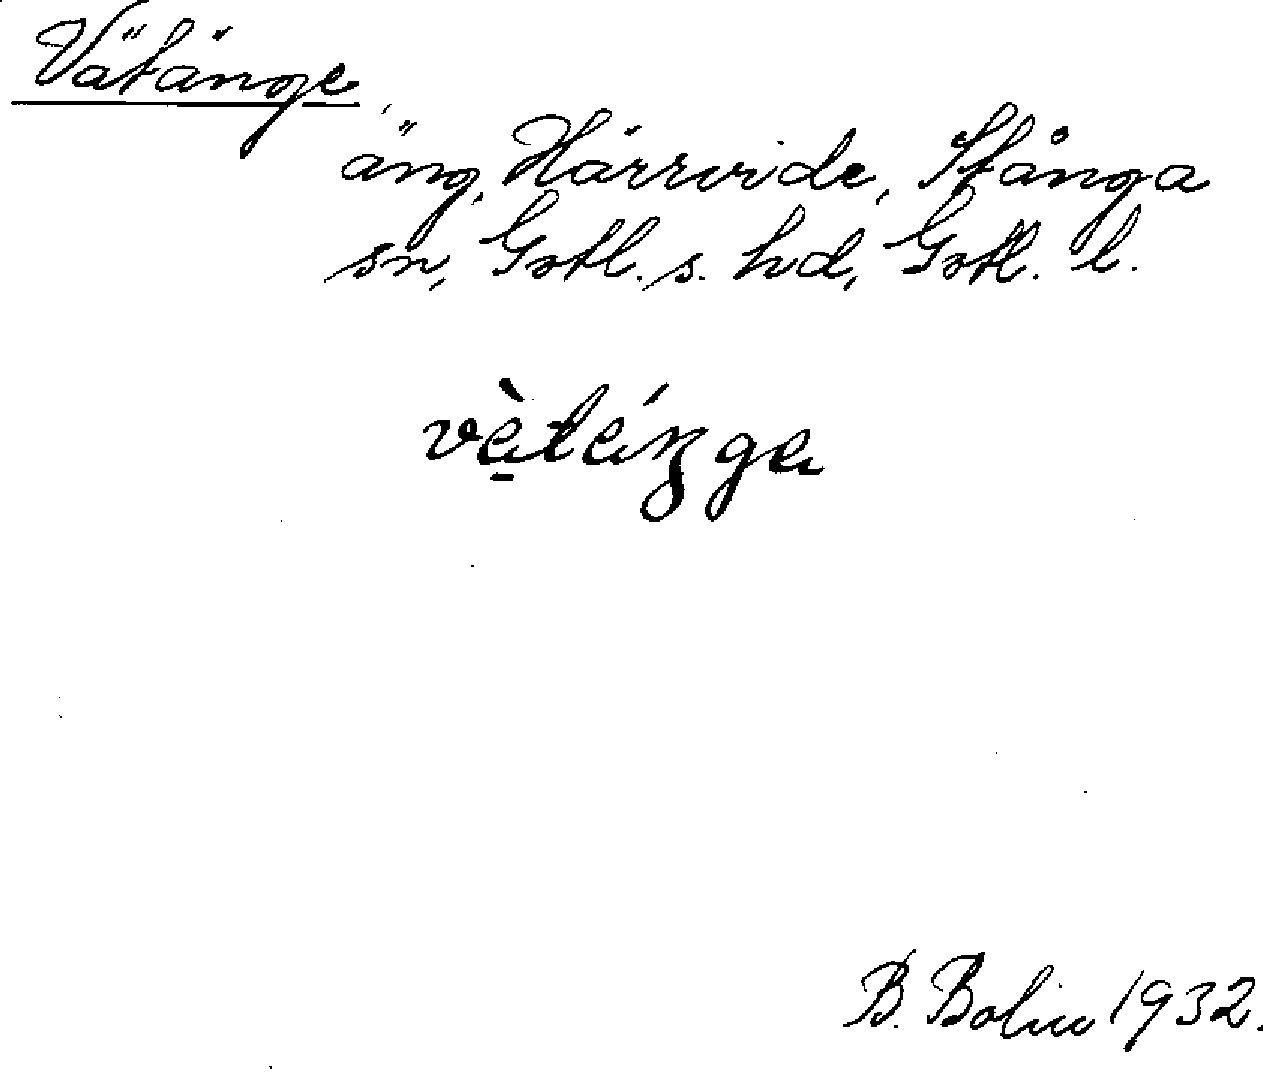 Vätänge,
äng, Härrvide, Stånga
sn, Gotl. s. hd, Gotl. l.
vè̠téŋge
B. Bolin 1932.